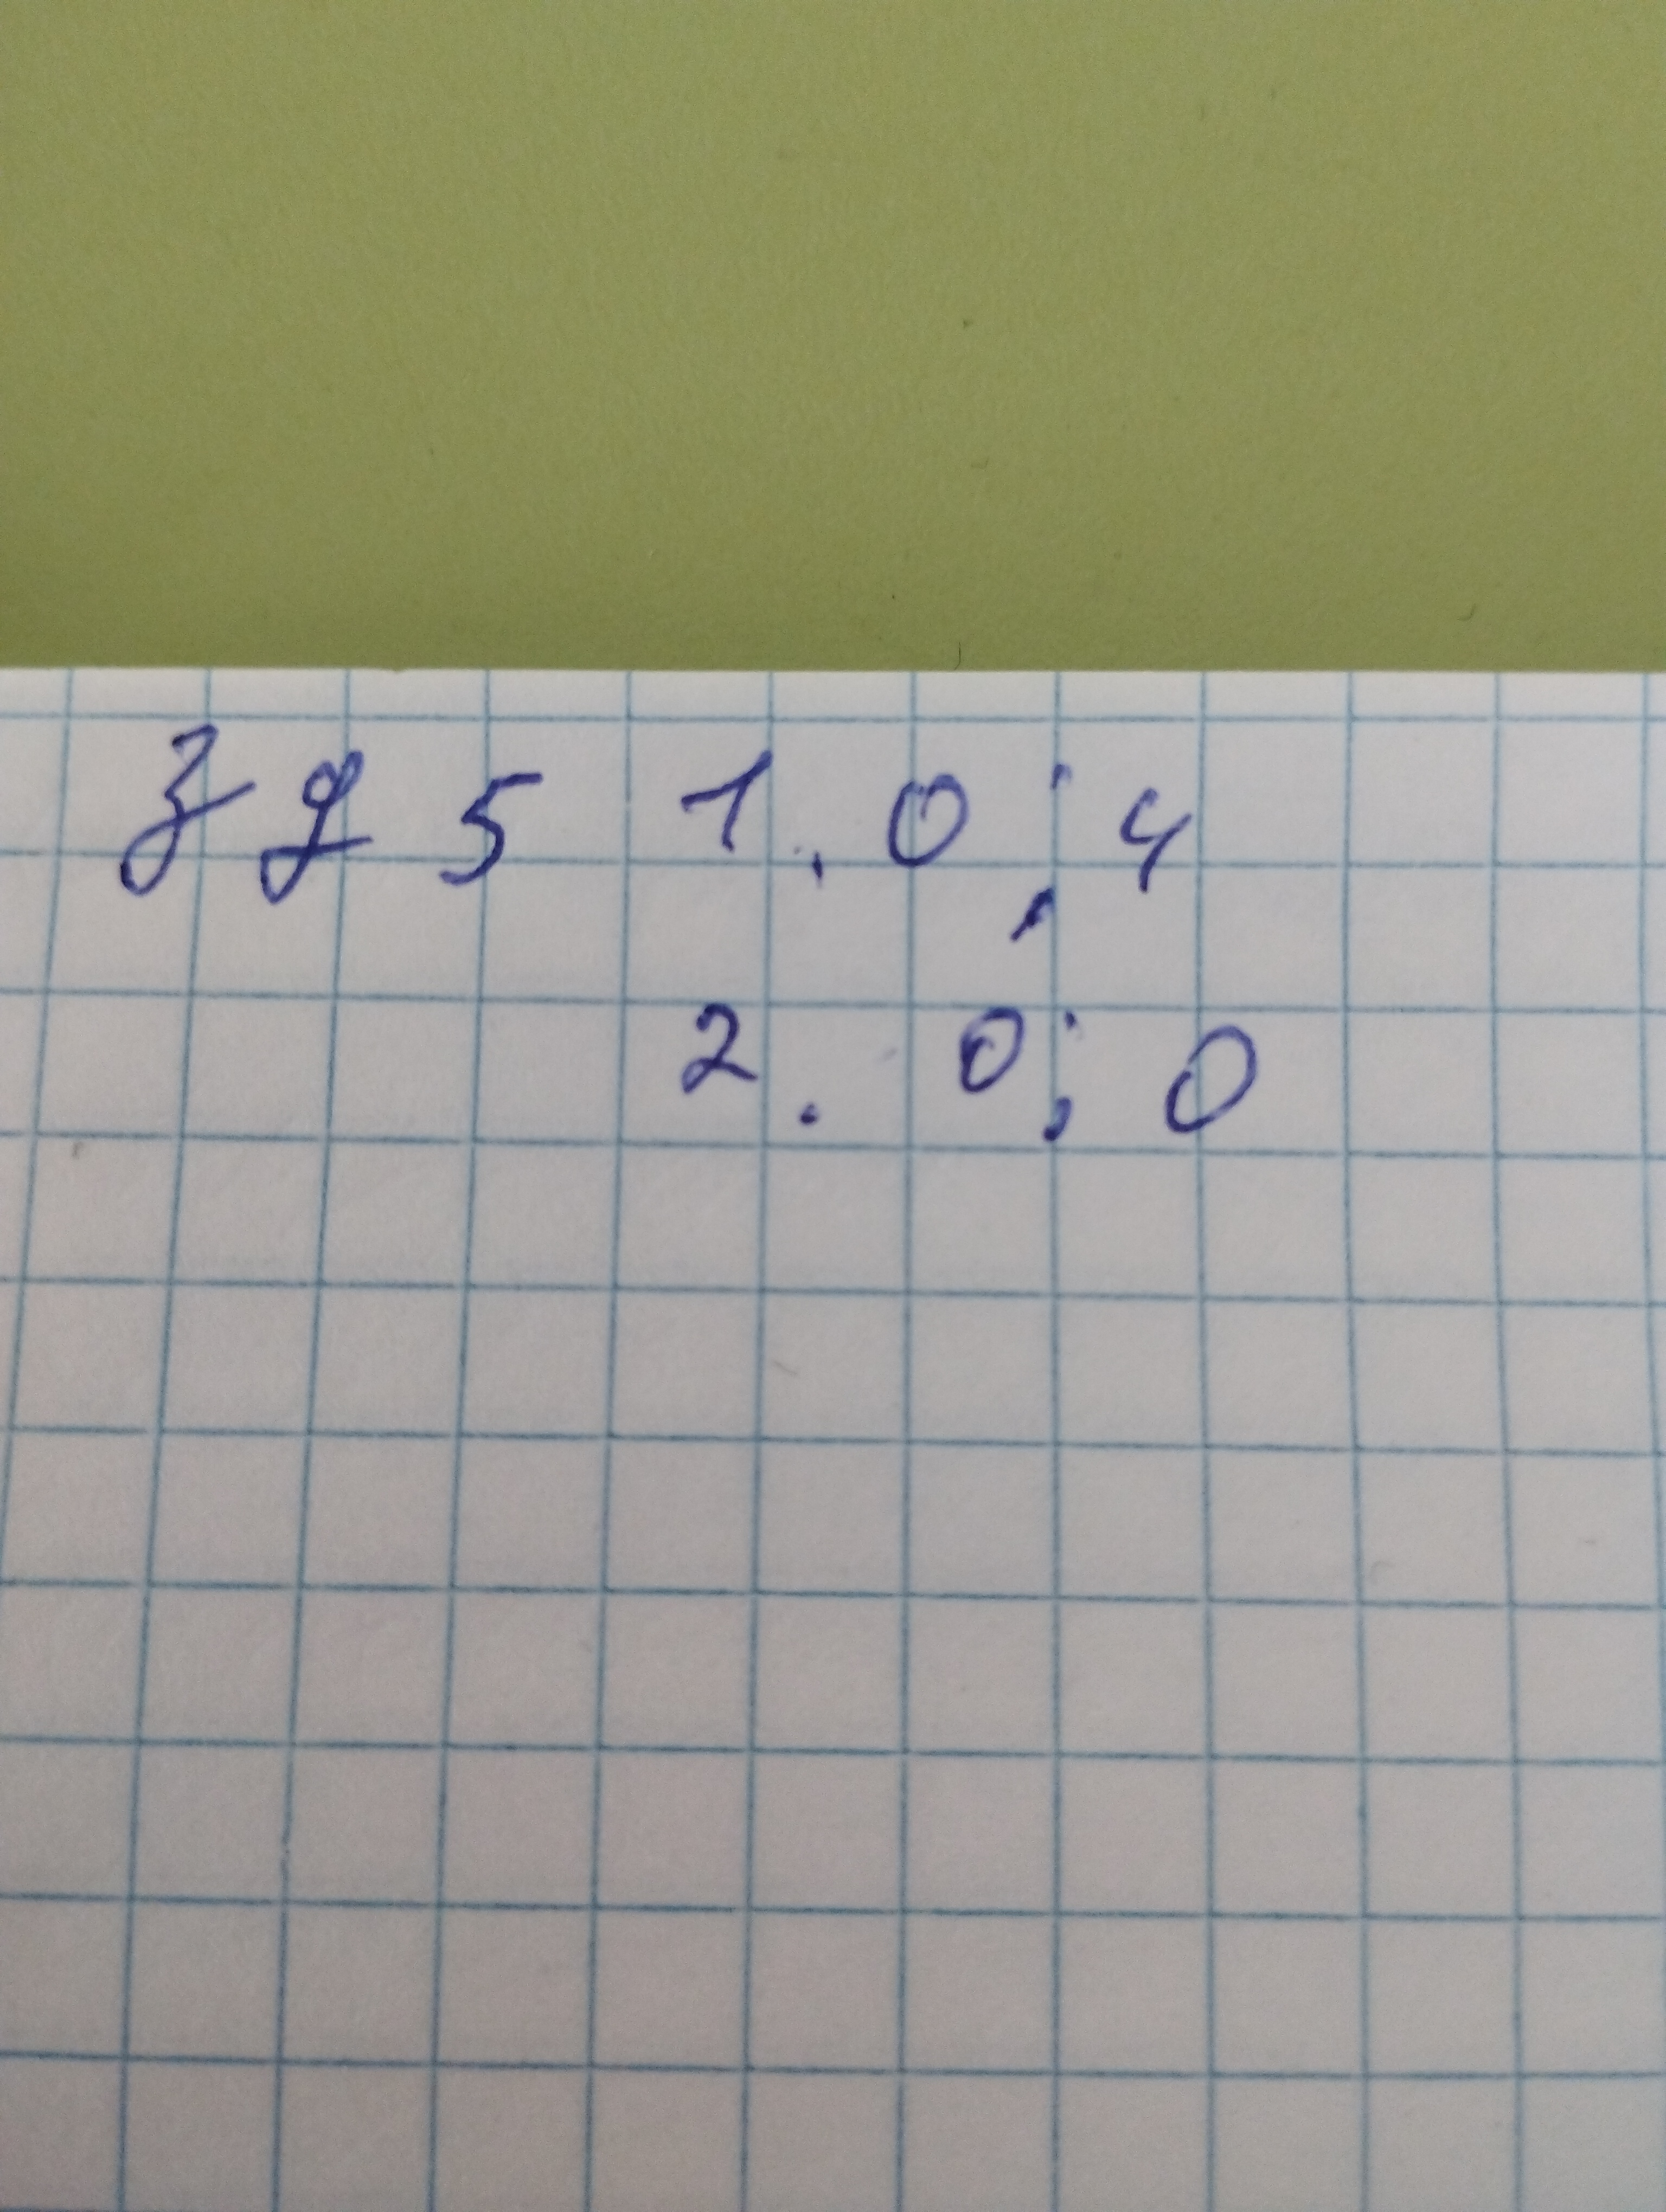 зд 5 1. 0; 4
2. 0; 0